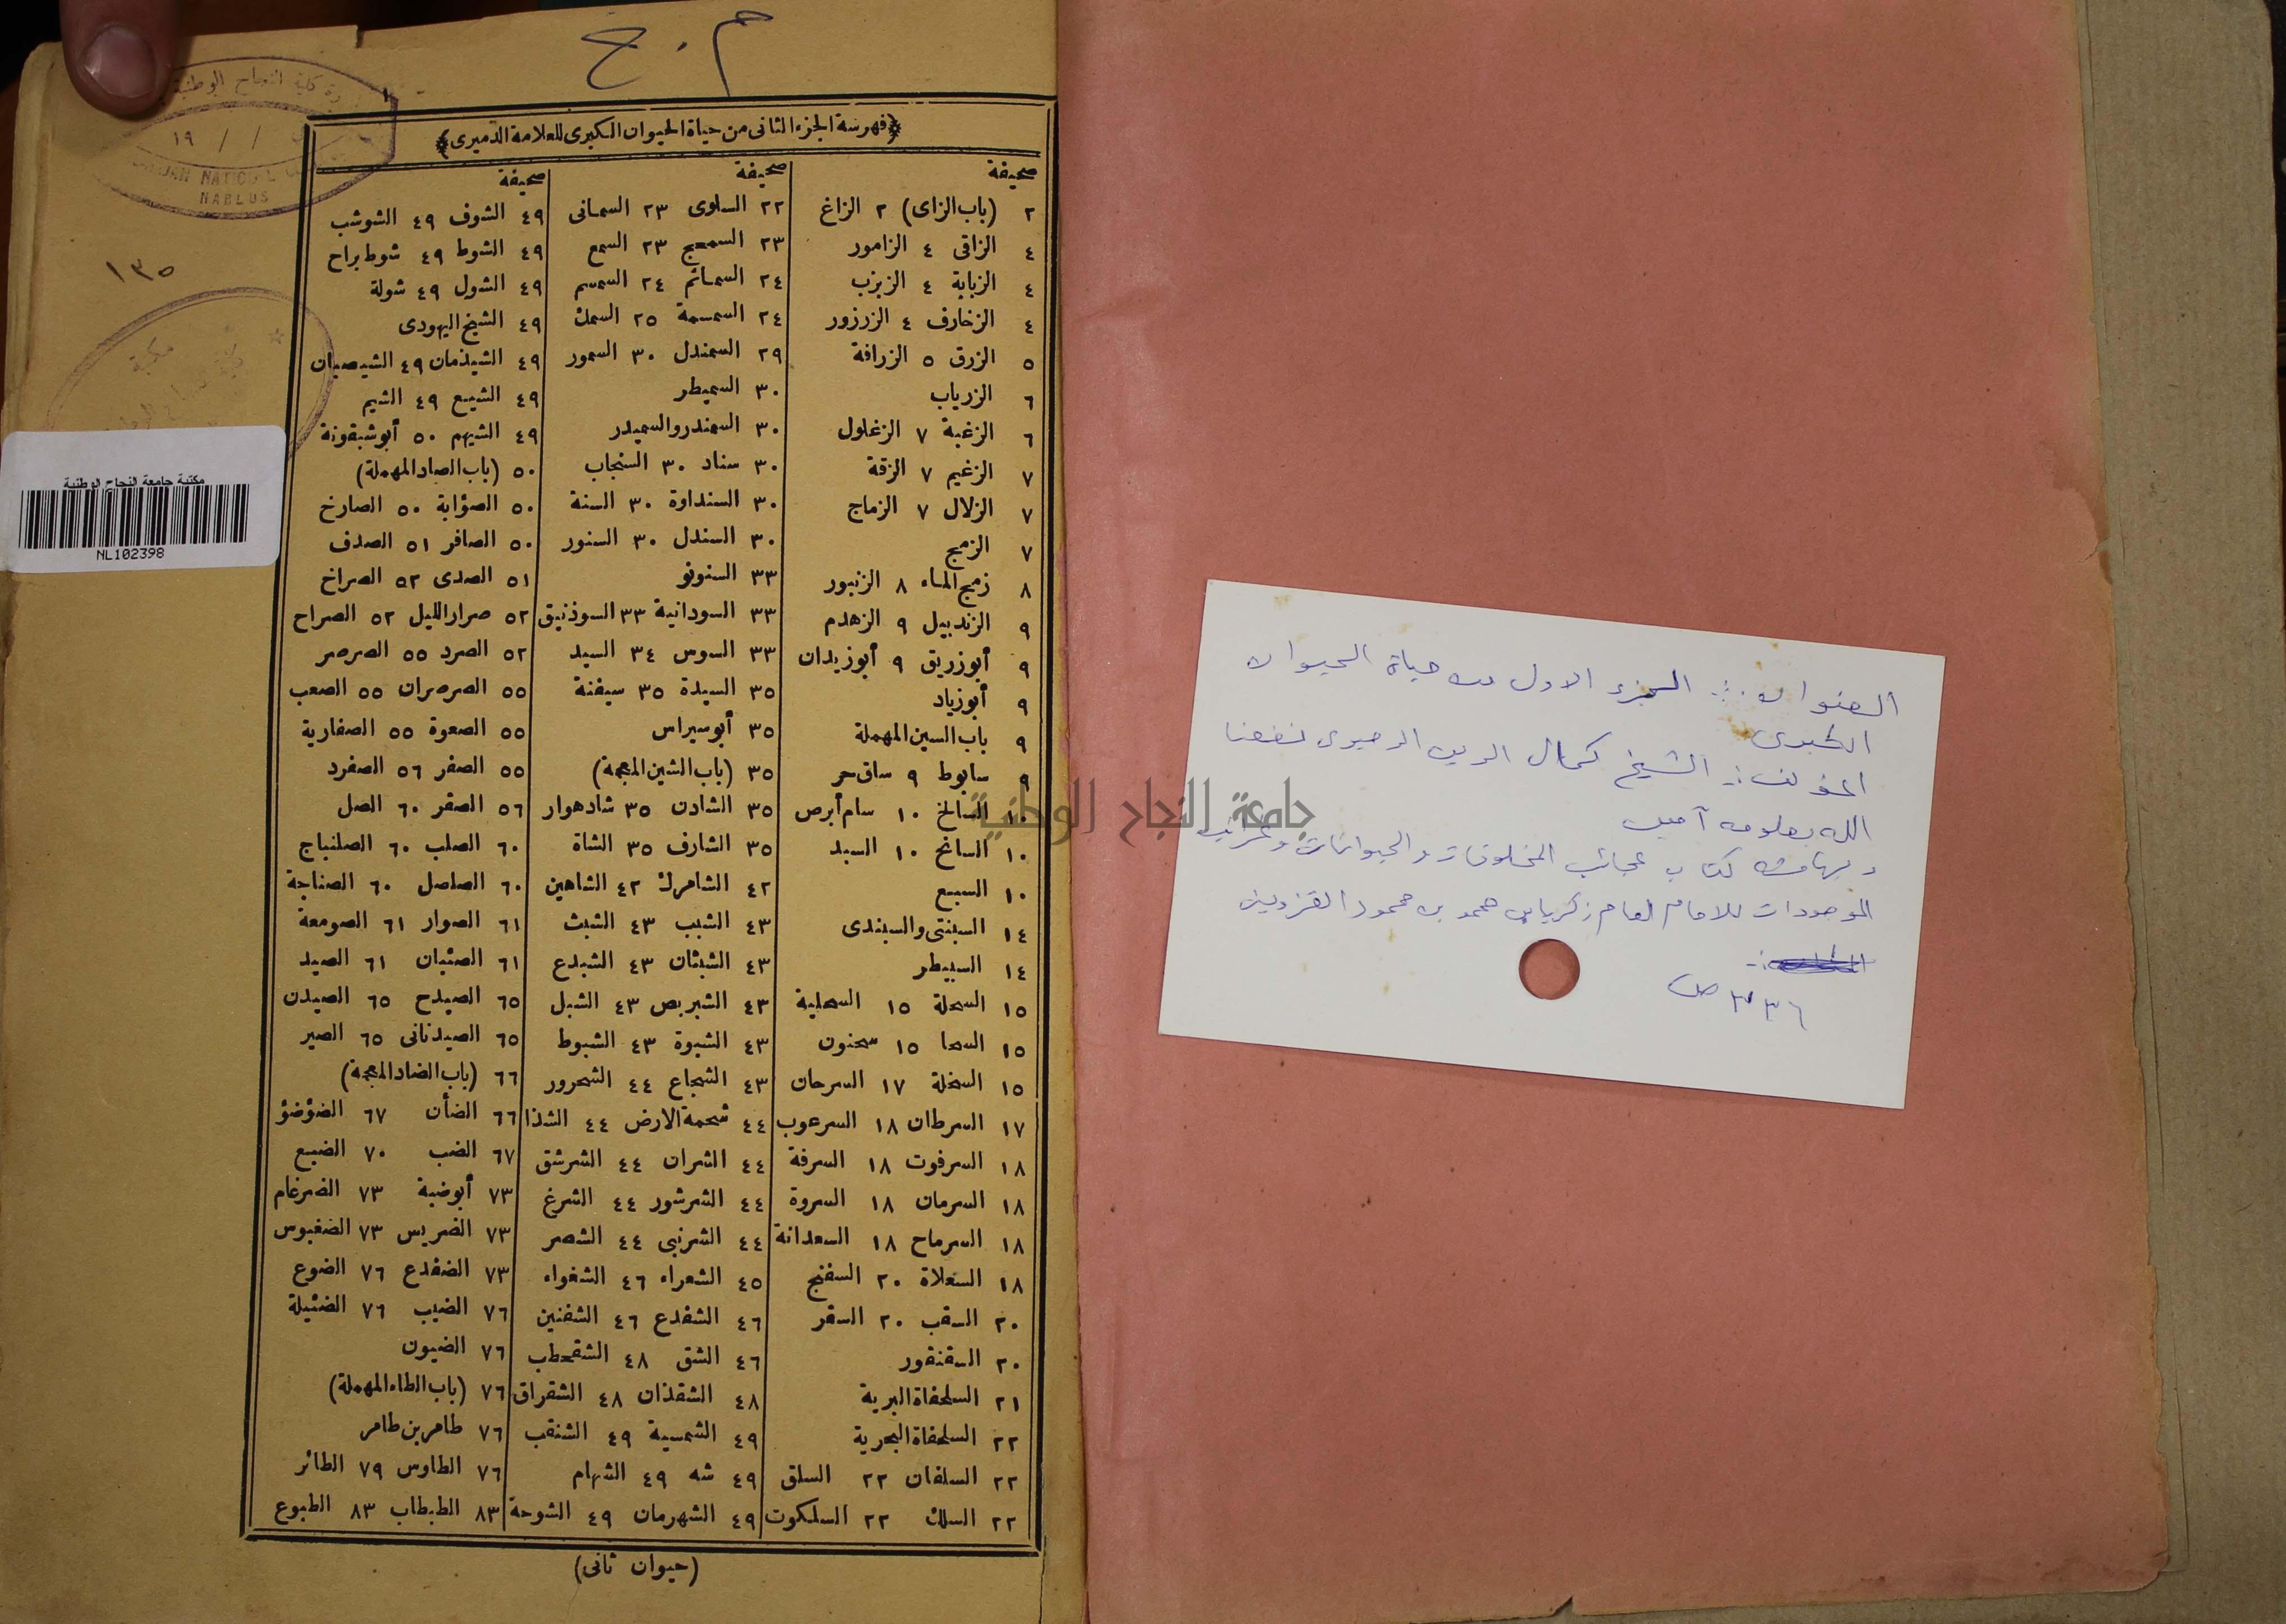 العنوان :- الجزء الاول من حياة الحيوان
الكبرى
المؤلف :- الشيخ كمال الدين الدميرى نفعنا
الله بعلومه آمين
وبهامشه كتاب عجائب المخلوقات والحيوانات وغرائب
الموجودات للامام العام زكريا بن محمد بن محمود القزوينى
٣٣٦ ص
جامعة النجاح الوطنية
م . ح
﴿فهرسة الجزء الثانى من حياة الحيوان الكبرى للعلامة الدميرى﴾
صحيفة
٢ (باب الزاى) ٢ الزاغ
٤ الزاقى ٤ الزامور
٤ الزبابة ٤ الزبزب
٤ الزخارف ٤ الزرزور
٥ الزرق ٥ الزرافة
٦ الزرياب
٦ الزغبة ٧ الزغلول
٧ الزغيم ٧ الزقة
٧ الزلال ٧ الزماج
٧ الزمج
٨ زمج الماء ٨ الزنبور
٩ الزندبيل ٩ الزهدم
٩ أبوزريق ٩ أبوزيدان
٩ أبوزياد
٩ باب السين المهملة
٩ سابوط ٩ ساق حر
١٠ السالخ ١٠ سام أبرص
١٠ السانح ١٠ السبد
١٠ السبع
١٤ السبنتى والسبندى
١٤ السبيطر
١٥ السحلة ١٥ السحلية
١٥ السحا ١٥ سحنون
١٥ السخلة ١٧ السرحان
١٧ السرطان ١٨ السرعوب
١٨ السرفوت ١٨ السرفة
١٨ السرمان ١٨ السروة
١٨ السرماح ١٨ السعدانة
١٨ السعلاة ٢٠ السفنج
٢٠ السقب ٢٠ السقر
٢٠ السقنقور
٢١ السلحفاة البرية
٢٢ السلحفاة البحرية
٢٢ السلفان ٢٢ السلق
٢٢ السلك ٢٢ السلكوت
صحيفة
٢٢ السلوى ٢٣ السمانى
٢٣ السمحج ٢٣ السمع
٢٤ السمائم ٢٤ السمسم
٢٤ السمسمة ٢٥ السمك
٢٩ السمندل ٣٠ السمور
٣٠ السميطر
٣٠ السمندر والسميدر
٣٠ سناد ٣٠ السنجاب
٣٠ السنداوة ٣٠ السنة
٣٠ السندل ٣٠ السنور
٣٣ السنونو
٣٣ السودانية ٣٣ السوذنيق
٣٣ السوس ٣٤ السيد
٣٥ السيدة ٣٥ سيفنة
٣٥ أبوسيراس
٣٥ (باب الشين المعجمة)
٣٥ الشادن ٣٥ شادهوار
٣٥ الشارف ٣٥ الشاة
٤٢ الشامرك ٤٢ الشاهين
٤٣ الشبب ٤٣ الشبث
٤٣ الشبثان ٤٣ الشبدع
٤٣ الشبربص ٤٣ الشبل
٤٣ الشبوة ٤٣ الشبوط
٤٣ الشجاع ٤٤ الشحرور
٤٤ شحمة الارض ٤٤ الشذا
٤٤ الشران ٤٤ الشرشق
٤٤ الشرشور ٤٤ الشرغ
٤٤ الشرنبى ٤٤ الشصر
٤٥ الشعراء ٤٦ الشغواء
٤٦ الشفدع ٤٦ الشفنين
٤٦ الشق ٤٨ الشقحطب
٤٨ الشقذان ٤٨ الشقراق
٤٩ الشمسية ٤٩ الشنقب
٤٩ شه ٤٩ الشهام
٤٩ الشهرمان ٤٩ الشوحة
صحيفة
٤٩ الشوف ٤٩ الشوشب
٤٩ الشوط ٤٩ شوط براح
٤٩ الشول ٤٩ شولة
٤٩ الشيخ اليهودى
٤٩ الشيذمان ٤٩ الشيصبان
٤٩ الشيع ٤٩ الشيم
٤٩ الشيهم ٥٠ أبوشبقونة
٥٠ (باب الصاد المهملة)
٥٠ الصؤابة ٥٠ الصارخ
٥٠ الصافر ٥١ الصدف
٥١ الصدى ٥٢ الصراخ
٥٢ صرار الليل ٥٢ الصراح
٥٢ الصرد ٥٥ الصرصر
٥٥ الصرصران ٥٥ الصعب
٥٥ الصعوة ٥٥ الصفارية
٥٥ الصفر ٥٦ الصفرد
٥٦ الصقر ٦٠ الصل
٦٠ الصلب ٦٠ الصلنباج
٦٠ الصلصل ٦٠ الصناجة
٦١ الصوار ٦١ الصومعة
٦١ الصئبان ٦١ الصيد
٦٥ الصيدح ٦٥ الصيدن
٦٥ الصيدنانى ٦٥ الصير
٦٦ (باب الضاد المعجمة)
٦٦ الضأن ٦٧ الضؤضؤ
٦٧ الضب ٧٠ الضبع
٧٣ أبوضبة ٧٣ الضرغام
٧٣ الضريس ٧٣ الضغبوس
٧٣ الضفدع ٧٦ الضوع
٧٦ الضيب ٧٦ الضئيلة
٧٦ الضيون
٧٦ (باب الطاء المهملة)
٧٦ طامر بن طامر
٧٦ الطاوس ٧٩ الطائر
٨٣ الطبطاب ٨٣ الطبوع
(حيوان ثانى)
كلية النجاح الوطنية
١٩ / /
NATIONAL
NABLUS
١٣٥
مكتبة
مكتبة جامعة النجاح الوطنية
NL102398